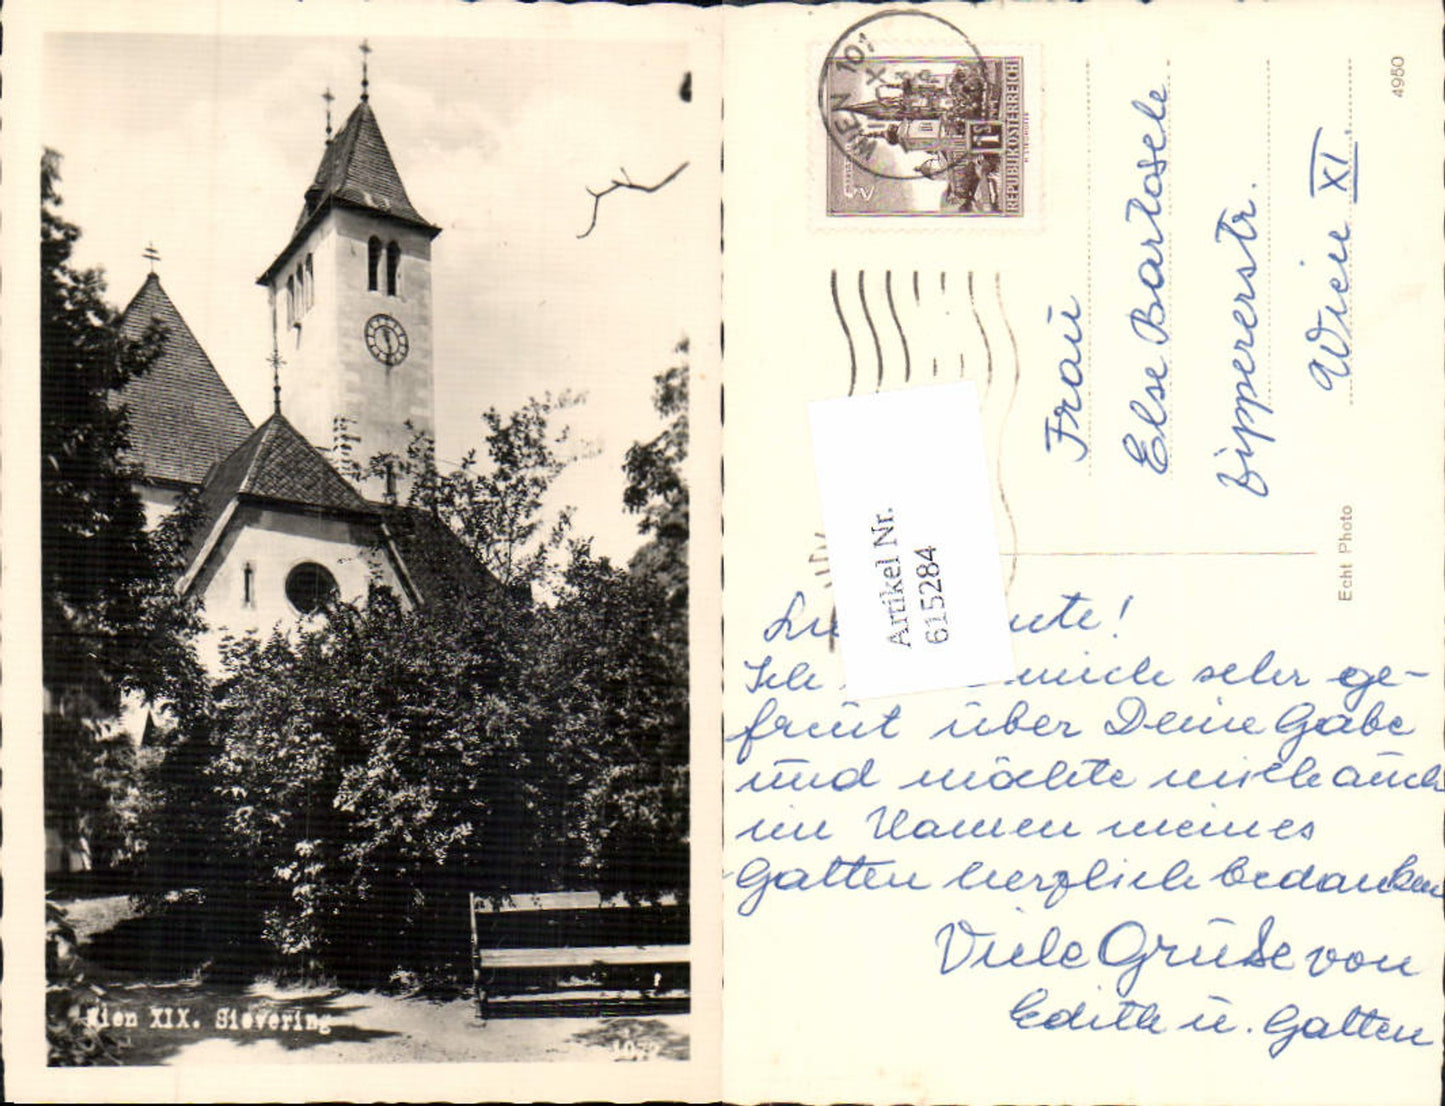 Wien XIX. Sievering
1072
WIEN 101
REPUBLIK ÖSTERREICH
Frau
Else Bartosek
Zippererstr.
Wien XI.
4950
Echt Photo
Artikel Nr.
615284
Ich mich sehr ge-
freut über Deine Gabe
und möchte mich auch
im Namen meines
Gatten herzlich bedanken
Viele Grüße von
Edith u. Gatten